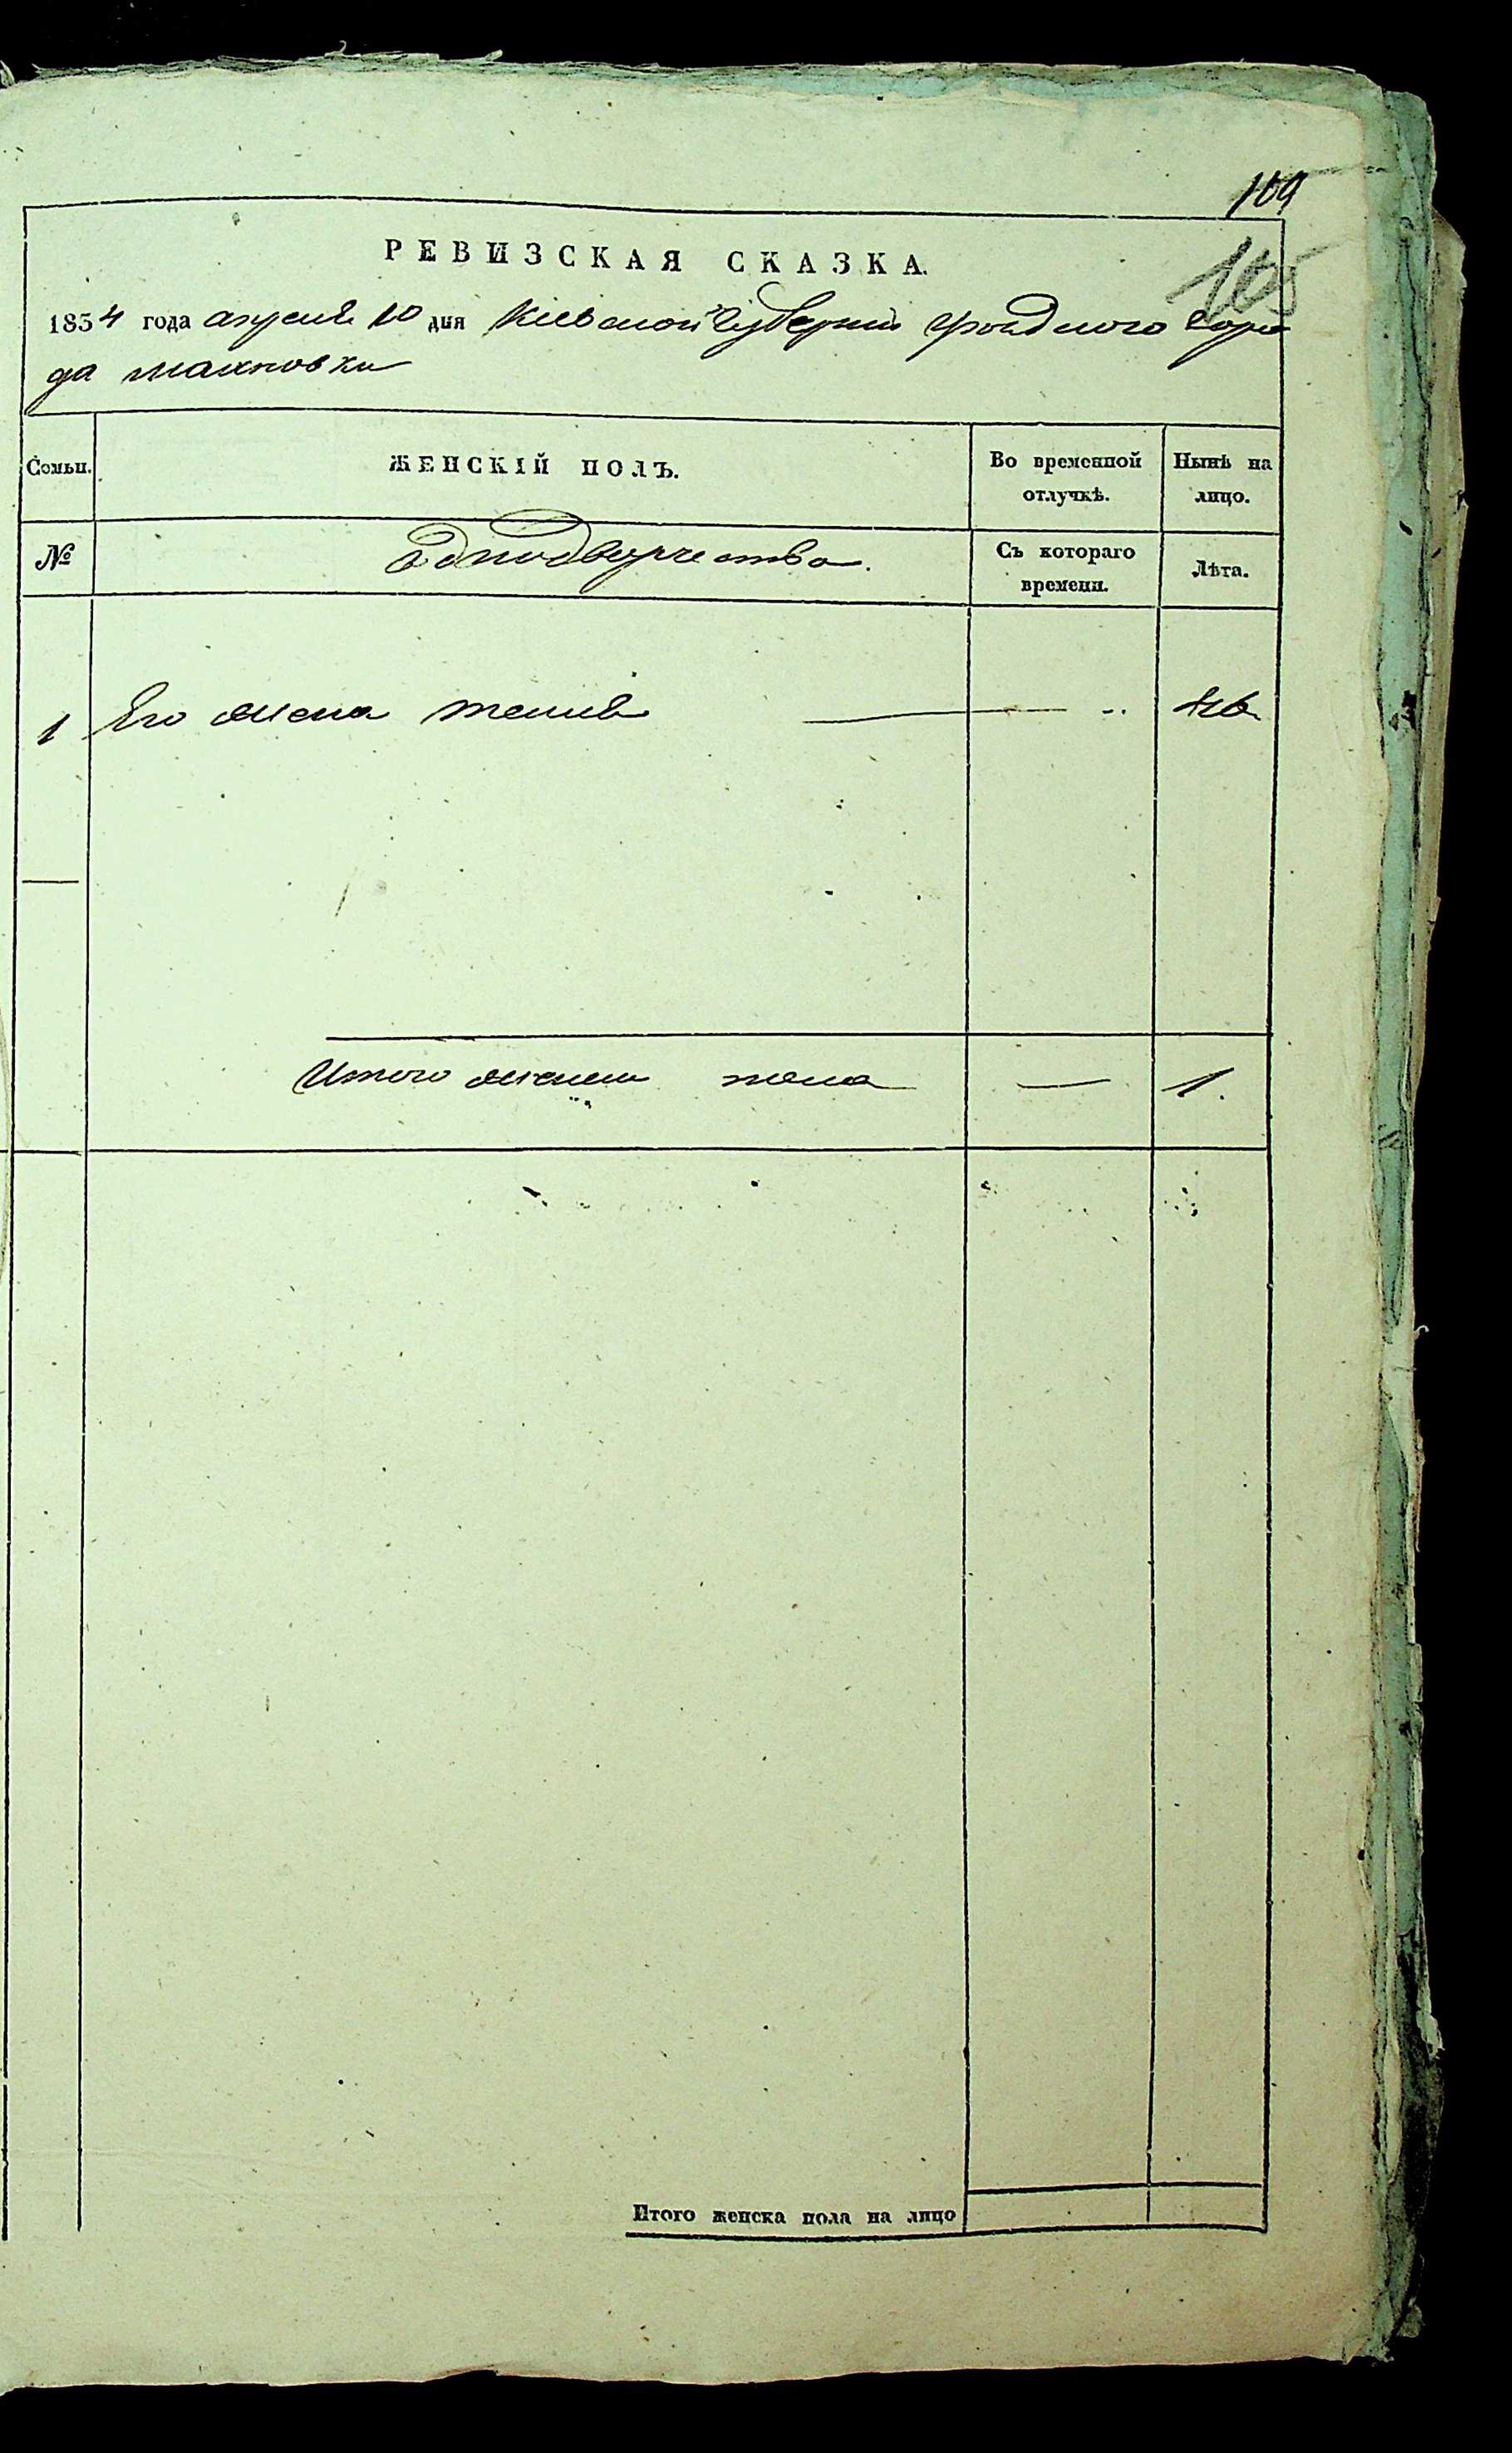 109
105
РЕВИЗСКАЯ СКАЗКА.
1854 года апреля 10 дня Киевской Губернии уездного горо
да Махновки
Семьи. ЖЕНСКІЙ ПОЛЪ. Во временной отлучкѣ. Нынѣ на лицо.
№ Однодворчества. Съ котораго времени. Лѣта.
1 Его жена
Итого женска пола — 1.
Итого женска пола на лицо